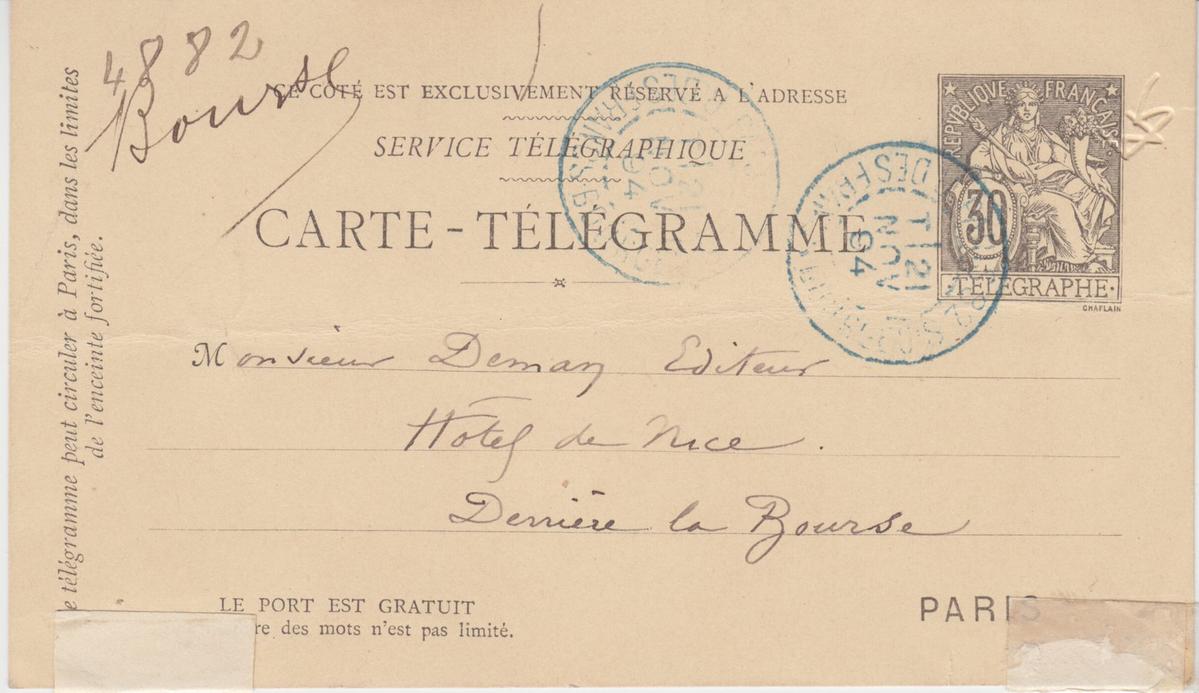 4882
Bourse
CE CÔTÉ EST EXCLUSIVEMENT RÉSERVÉ A L'ADRESSE
SERVICE TÉLÉGRAPHIQUE
CARTE-TÉLÉGRAMME
REPVBLIQVE FRANÇAISE
30
TÉLÉGRAPHE
CHAPLAIN
21
NOV
94
21
NOV
94
Monsieur Deman Editeur
Hôtel de Nice.
Derrière la Bourse
PARIS
LE PORT EST GRATUIT
re des mots n'est pas limité.
e télégramme peut circuler à Paris, dans les limites
de l'enceinte fortifiée.